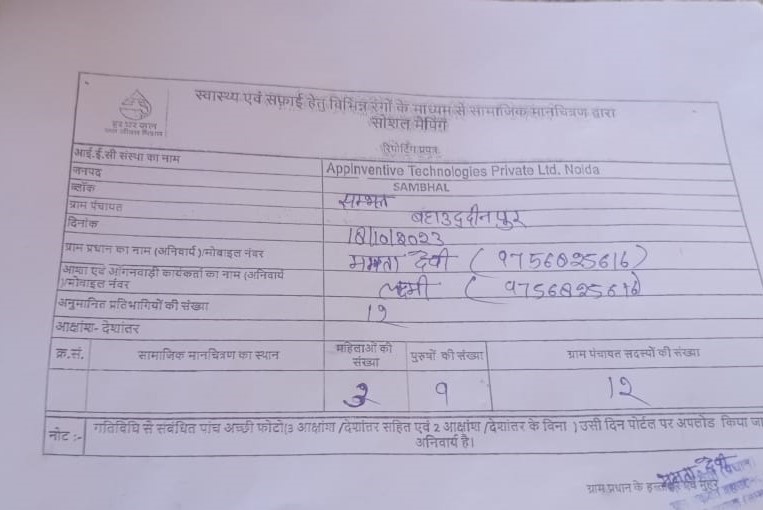 स्वास्थ्य एवं सफ़ाई हेतु विभिन्न रंगों के माध्यम से सामाजिक मानचित्रण द्वारा
सोशल मैपिंग
हर घर जल
जल जीवन मिशन
रिपोर्टिंग प्रपत्र
आई.ई.सी संस्था का नाम Appinventive Technologies Private Ltd. Noida
जनपद SAMBHAL
ब्लॉक सम्भल
ग्राम पंचायत बहाउद्दीनपुर
दिनांक 18/10/2023
ग्राम प्रधान का नाम (अनिवार्य)/मोबाइल नंवर ममता देवी (9756825616)
आशा एवं आंगनवाड़ी कार्यकर्ता का नाम (अनिवार्य
)/मोबाइल नंवर लक्ष्मी (9756825616)
अनुमानित प्रतिभागियों की संख्या 12
आक्षांश- देशांतर
क्र.सं. सामाजिक मानचित्रण का स्थान महिलाओं की संख्या पुरुषों की संख्या ग्राम पंचायत सदस्यों की संख्या
3 9 12
नोट :- गतिविधि से संबंधित पांच अच्छी फोटो(3 आक्षांश /देशांतर सहित एवं 2 आक्षांश /देशांतर के विना ) उसी दिन पोर्टल पर अपलोड किया जा
अनिवार्य है।
ममता देवी
ग्राम प्रधान के हस्ताक्षर एवं मुहर